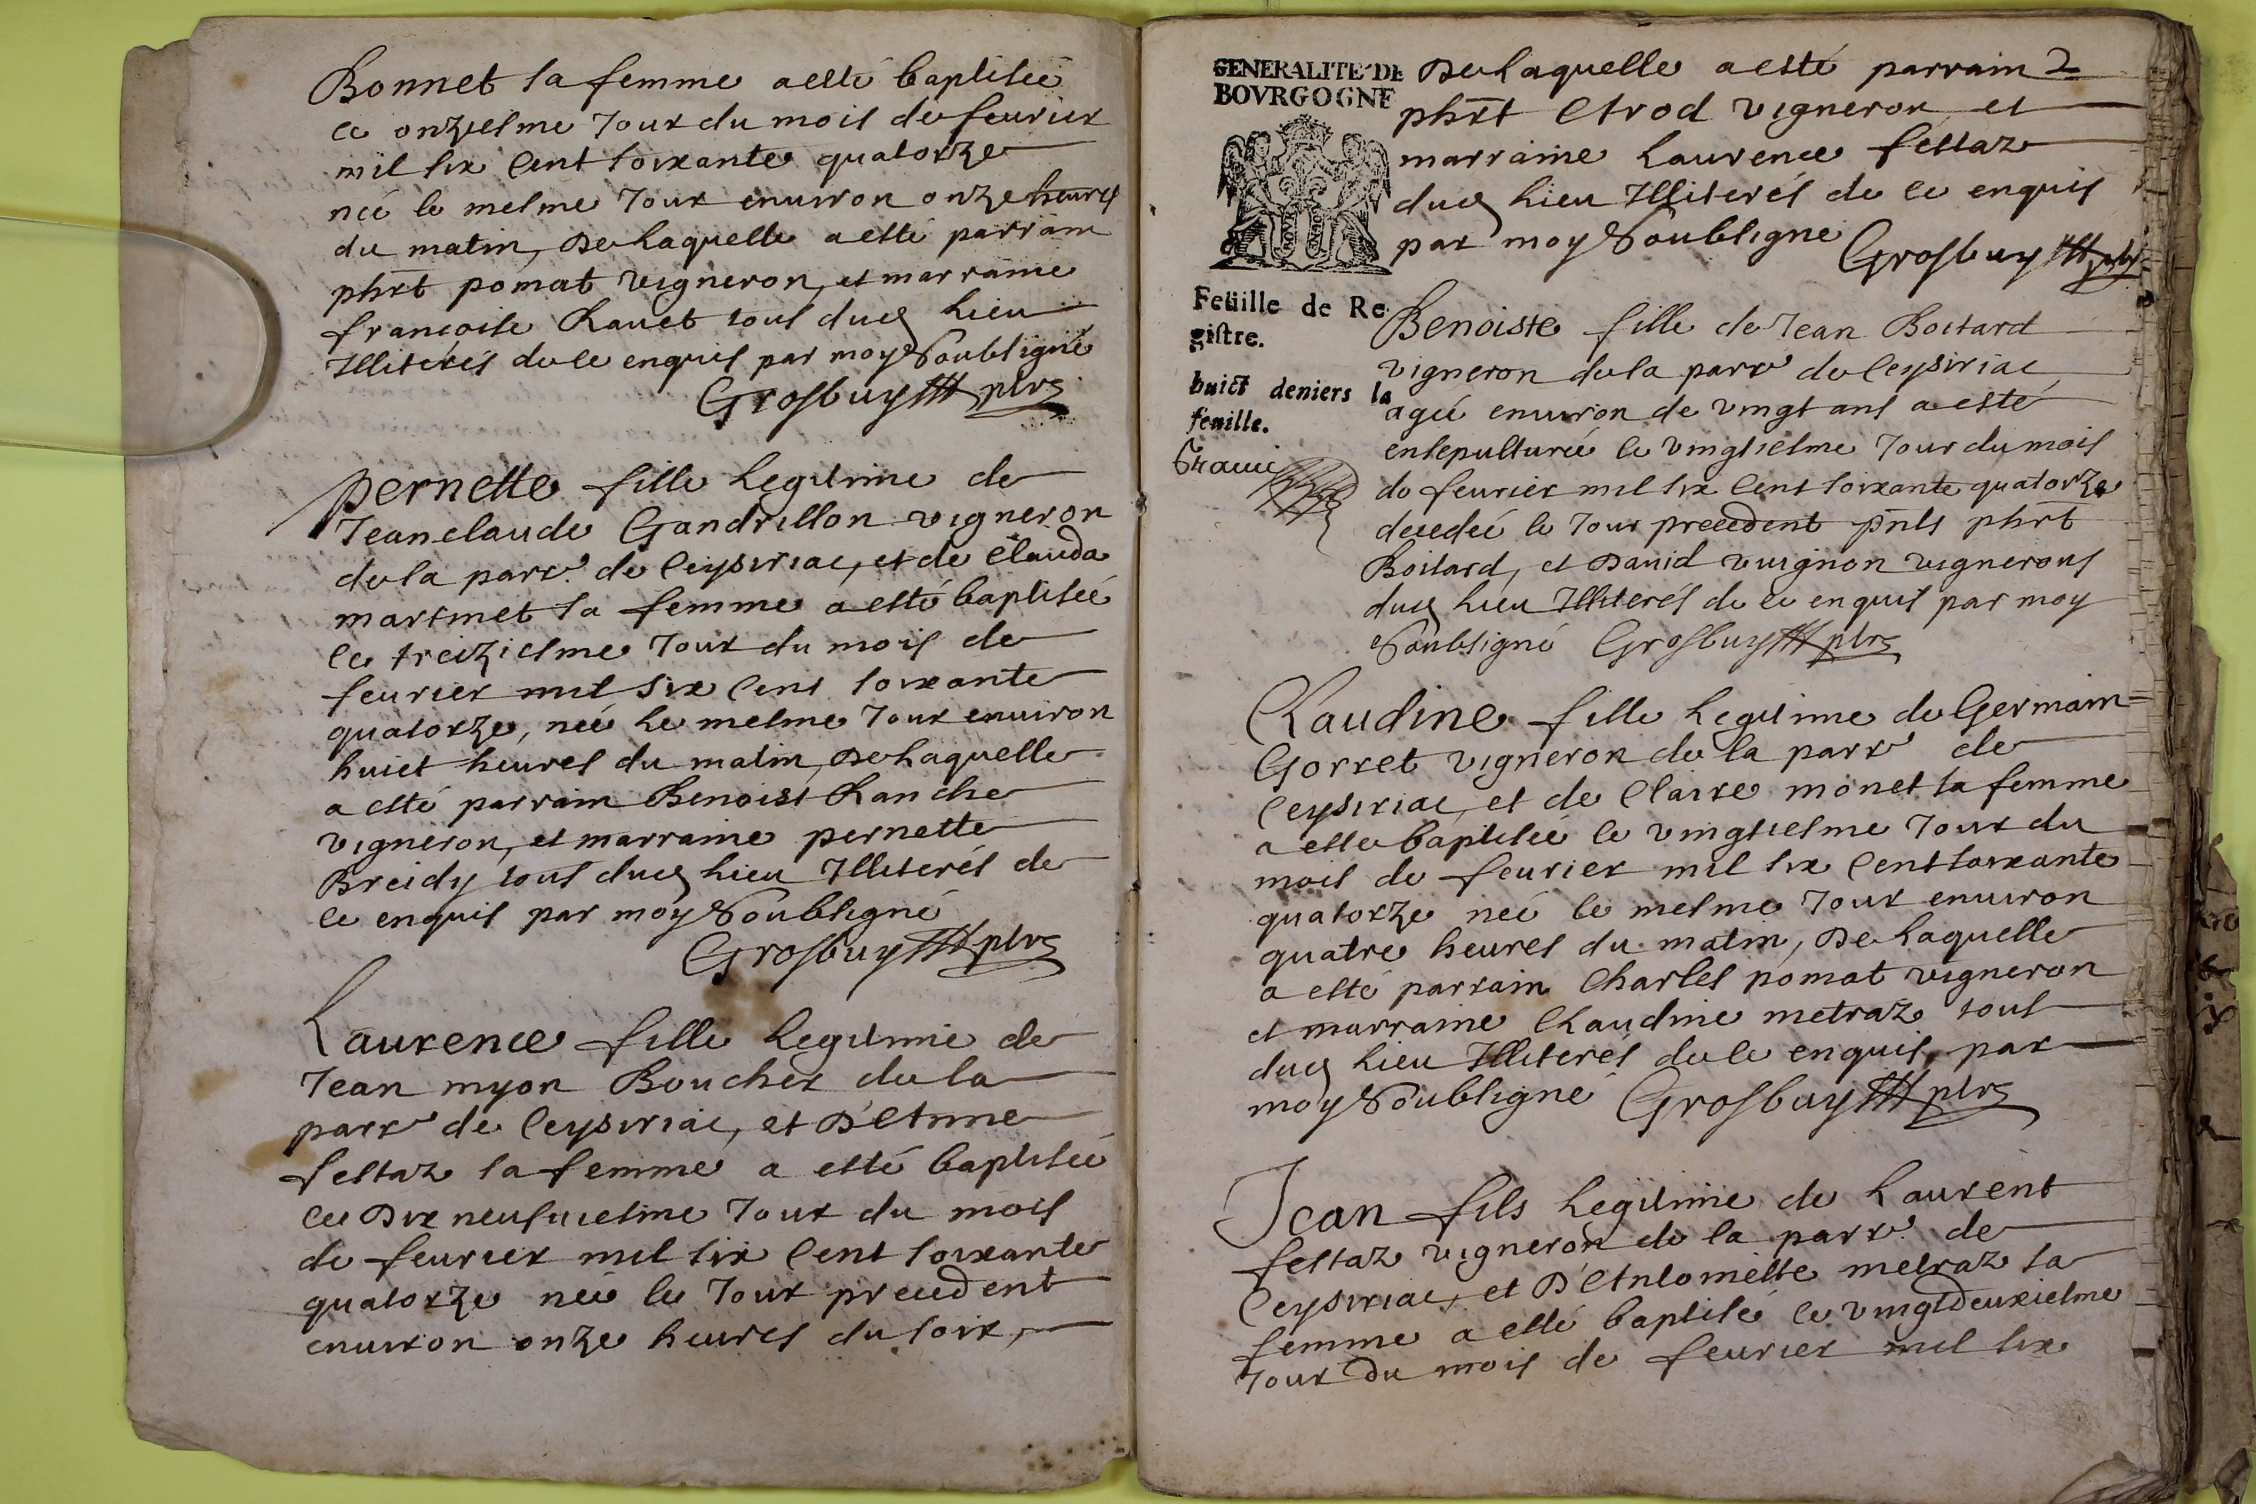 Bonnet sa femme a esté baptiséé
ce onziesme Jour du mois de feurier
mil six Cent soixante quatorze
néé le mesme Jour enuiron onze heures
du matin, De Laquelle a esté parrain
phrt pomat vigneron, et marraine
francoise Rauet tous dud Lieu
Illiterés de ce enquis par moy Soubsigné
Grosbuy ptre
pernette fille Legitime de
Jean claude Gandrillon vigneron
de la parr. de Ceysiriac, et de Clauda
martinet sa femme a esté baptiséé
le treiziesme Jour du mois de
feurier mil six Cent soixante
quatorze, néé Le mesme Jour enuiron
huict heures du matin, De Laquelle
a esté parrain Benoist Ranche
vigneron, et marraine pernette
Breidy tous dud Lieu Illiterés de
ce enquis par moy Soubsigné
Grosbuy ptre
Laurence fille Legitime de
Jean myon Boucher de la
parr de Ceysiriac, et D'Anne
festaz sa femme a esté baptiséé
le Dix neufuiesme Jour du mois
de feurier mil six Cent soixante
quatorze néé le Jour precedent
enuiron onze heures du soir,
GENERALITE DE
BOVRGOGNE
Feüille de Re
gistre.
huict deniers la
feuille.
De Laquelle a esté parrain
phrt Arod vigneron, et
marraine Laurence festaz
dud Lieu Illiterés de ce enquis
par moy Soubsigné Grosbuy ptre
Benoiste fille de Jean Boitard
vigneron de la parr de Ceysiriac
agéé enuiron de vingt ans a esté
ensepulturéé le vingtiesme Jour du mois
de feurier mil six Cent soixante quatorze
decedéé le Jour precedent pnts phrt
Boitard, et Dauid vuignon vignerons
dud Lieu Illiterés de ce enquis par moy
Soubsigné Grosbuy ptre
Claudine fille Legitime de Germain
Gorret vigneron de la parr de
Ceysiriac, et de Claire monet sa femme
a este baptiséé le vingtiesme Jour du
mois de feurier mil six Cent soixante
quatorze néé le mesme Jour enuiron
quatre heures du matin, De Laquelle
a esté parrain Charles pomat vigneron
et marraine Claudine metraz tous
dud Lieu Illiterés de ce enquis par
moy Soubsigné Grosbuy ptre
Jean fils Legitime de Laurent
festaz vigneron de la parr. de
Ceysiriac, et D'Antoinette metraz sa
femme a esté baptisé le vingtdeuxiesme
Jour du mois de feurier mil six